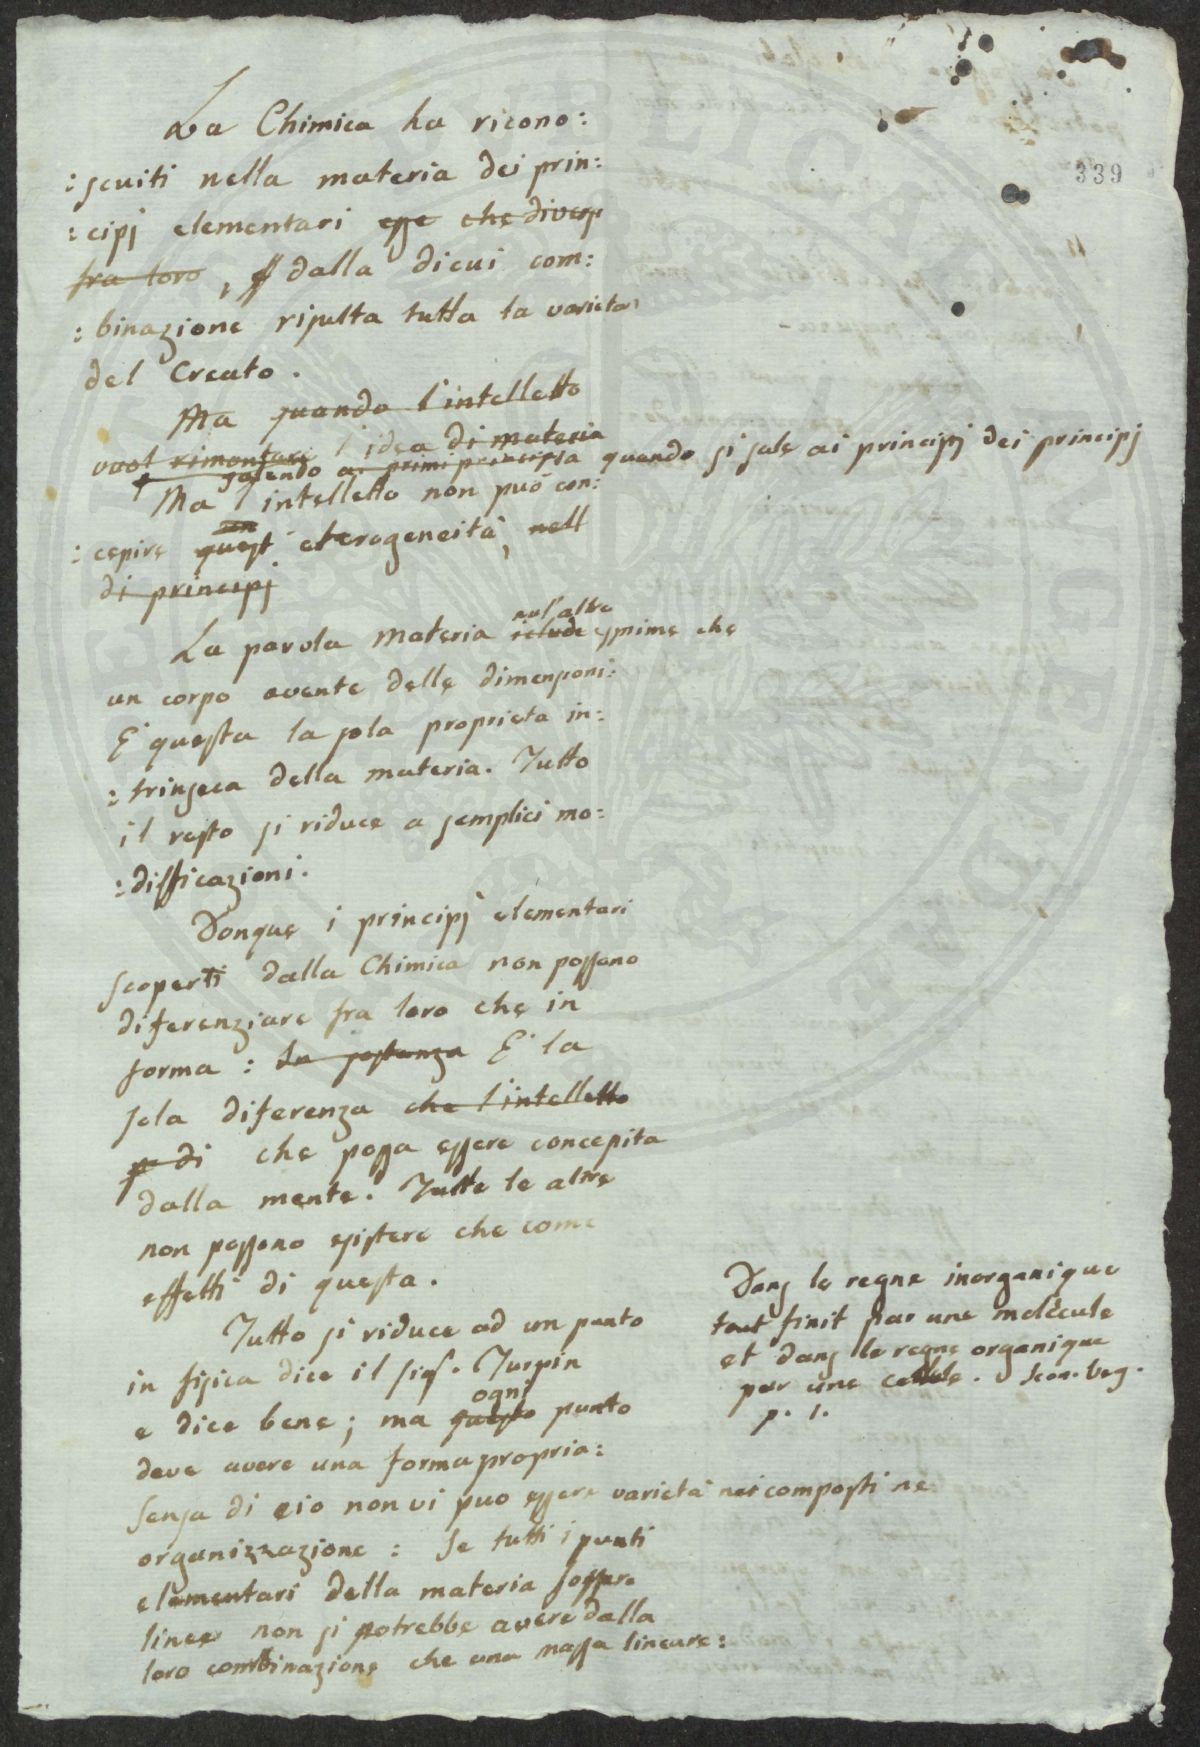 339
La Chimica ha ricono:
:sciuiti nella materia dei prin:
:cipj elementari esse che diversi
fra loro, dalla dicui com:
:binazione risulta tutta la varieta
del Creato.
Ma quando l'intelletto
vuol rimontare l'idea di materia
salendo ai primi principia quando si sale ai principj dei principj
Ma l'intelletto non può con:
un
:cepire quest eterogeneità, nell
di principj
null'altro
La parola materia esprime che
un corpo avente delle dimensioni:
E' questa la sola proprieta in:
:trinseca della materia. Tutto
il resto si riduce a semplici mo:
:difficazioni.
Donque i principj elementari
scoperti dalla Chimica non possono
diferenziare fra loro che in
forma: la sostanza E' la
sola diferenza che l'intelletto
che possa essere concepita
dalla mente. Tutte le altre
non possono esistere che come
effetti di questa.
Tutto si riduce ad un punto
in fisica dice il sig. Turpin
ogni
e dice bene; ma questo punto
deve avere una forma propria:
Sensa di cio non vi puo essere varietà nei composti ne
organizzazione: Se tutti i punti
elementari della materia fossero
linee non si potrebbe avere dalla
loro combinazione che una massa lineare:
Dans le regne inorganique
tout finit par une molécule
et dans le regne organique
par une cellule. Icon. Veg.
p. 1.